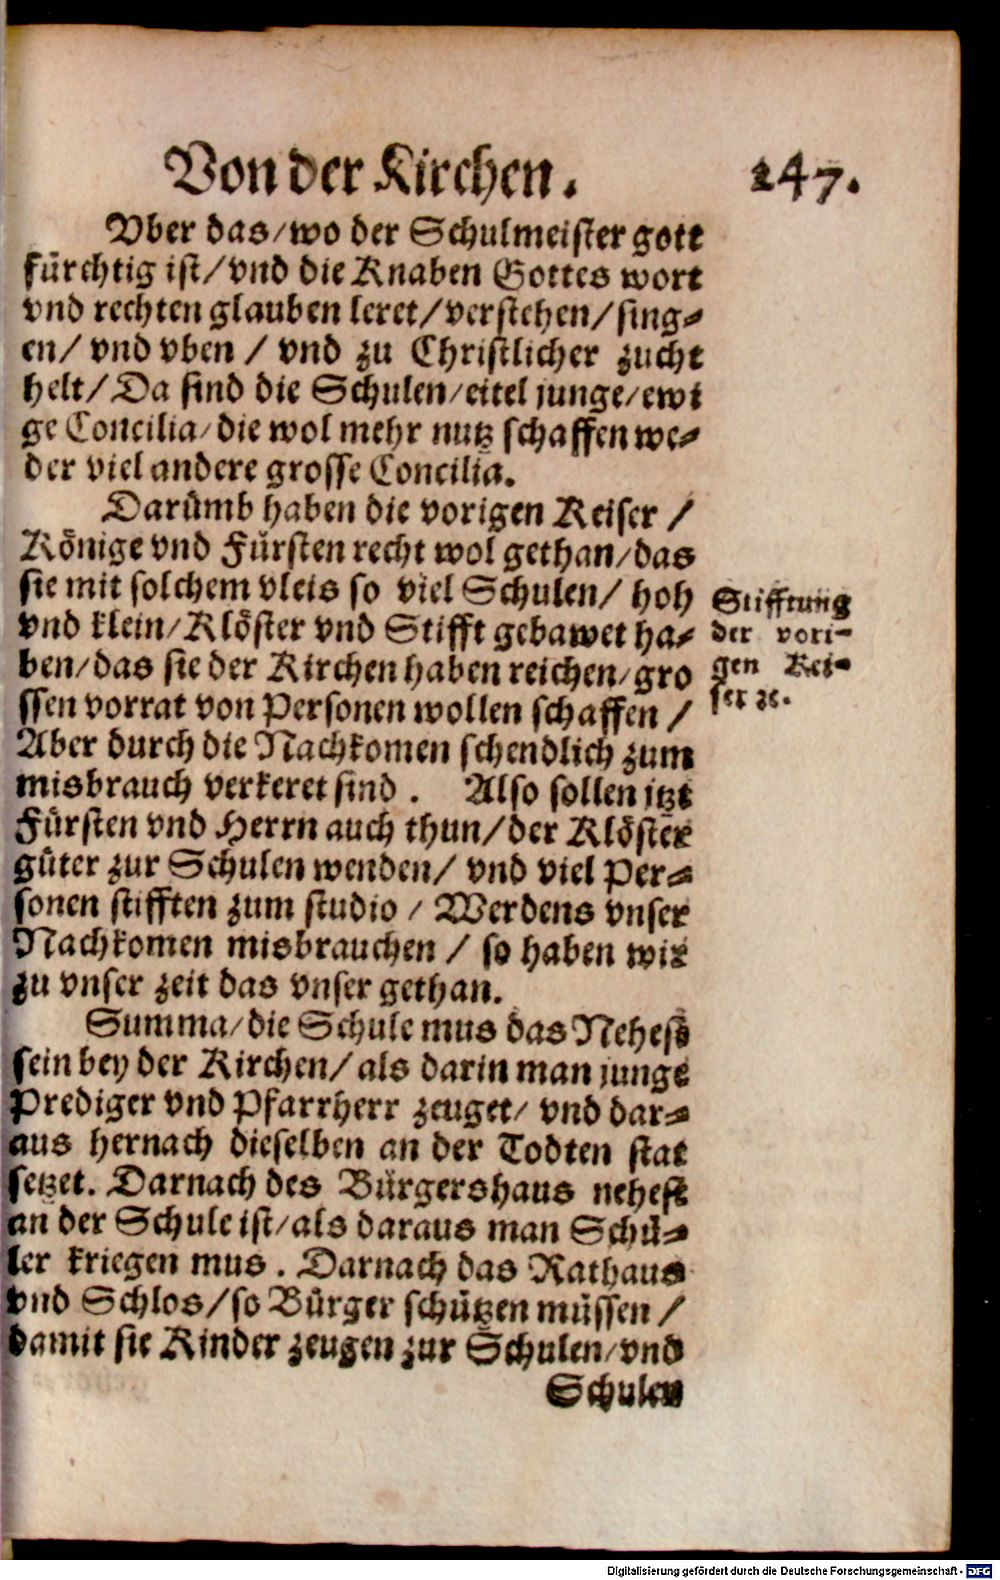 Von der Kirchen. 247.
Vber das/wo der Schulmeister gott
fürchtig ist/vnd die Knaben Gottes wort
vnd rechten glauben leret/verstehen/sing⸗
en/ vnd vben / vnd zu Christlicher zucht
helt/Da sind die Schulen/eitel junge/ewi
ge Concilia/die wol mehr nutz schaffen we⸗
der viel andere grosse Concilia.
Darümb haben die vorigen Keiser /
Könige vnd Fürsten recht wol gethan/das
sie mit solchem vleis so viel Schulen/ hoh
vnd klein/Klöster vnd Stifft gebawet ha⸗
ben/das sie der Kirchen haben reichen/gro
ssen vorrat von Personen wollen schaffen /
Aber durch die Nachkomen schendlich zum
misbrauch verkeret sind . Also sollen jtzt
Fürsten vnd Herrn auch thun/der Klöster
güter zur Schulen wenden/ vnd viel Per⸗
sonen stifften zum studio / Werdens vnser
Nachkomen misbrauchen / so haben wir
zu vnser zeit das vnser gethan.
Summa/die Schule mus das Nehest
sein bey der Kirchen/ als darin man junge
Prediger vnd Pfarrherr zeuget/ vnd dar⸗
aus hernach dieselben an der Todten stat
setzet. Darnach des Bürgershaus nehest
an der Schule ist/als daraus man Schü⸗
ler kriegen mus . Darnach das Rathaus
vnd Schlos/so Bürger schützen müssen /
damit sie Kinder zeugen zur Schulen/vnd
Schulen
Stifftung
der vori⸗
gen Kei⸗
ser ꝛc.
Digitalisierung gefördert durch die Deutsche Forschungsgemeinschaft - DFG